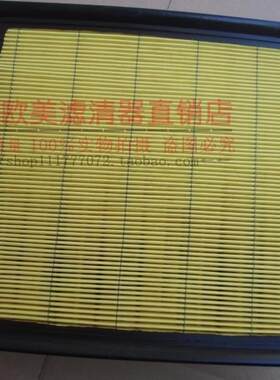 欧美滤清器直销店
100%实物拍摄 盗图必究
shop111777072.taobao.com